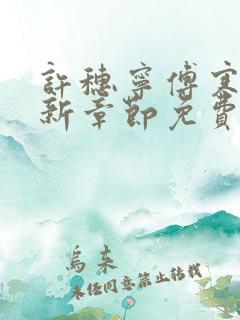 許穗寧傅寒
新章節免費
烏束
未經同意禁止轉載